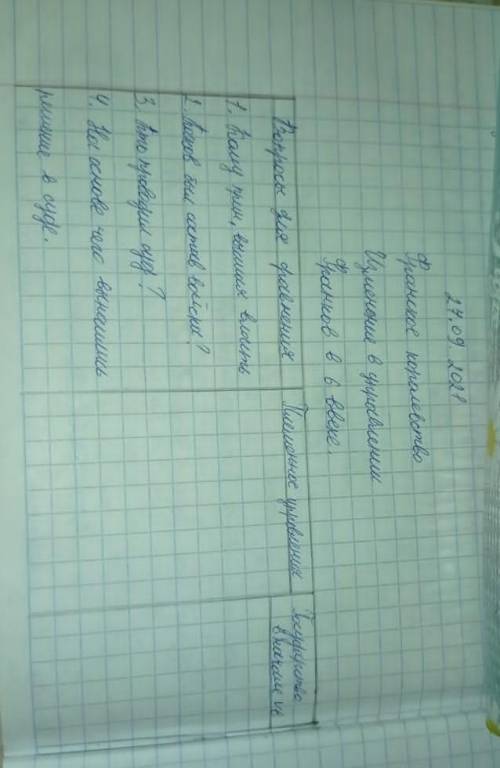 27.09 2021
Франское королевство
Изменение в управлении
Франков в 6 ввеке.
Вопросы для сравнения
Племенное управление
Государство
в начале
1. Кому прин, высшая власть
2. Каков был состав войска?
3. Кто проводил суд?
4. На основе чего выносили
решение в суде.